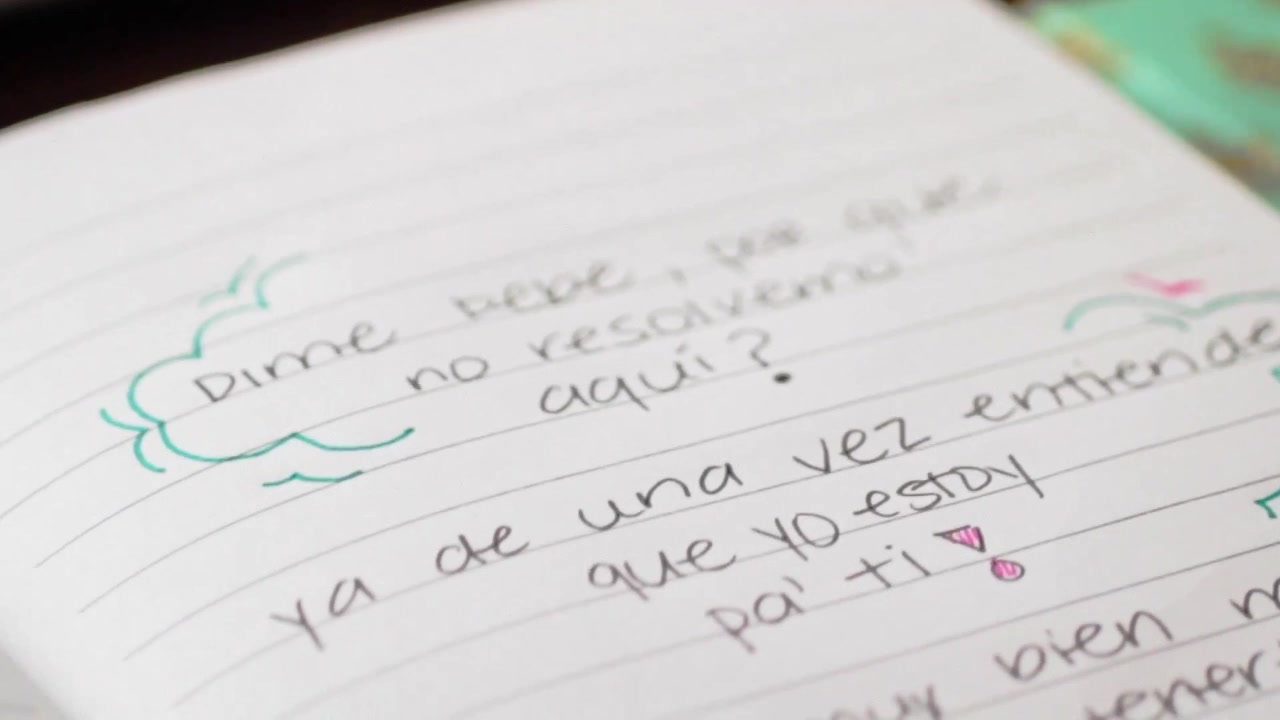 Dime bebe, por que
no resolvemo'
aquí?
ya de una vez entiende
que yo estoy
pa' ti!
bien